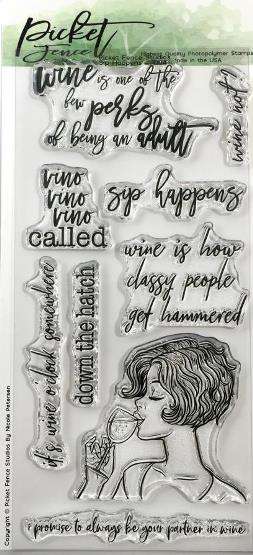 Picket
Fence
Picket Fence Studios
Sip Happens
Highest Quality Photopolymer Stamps
Made in the USA
wine is one of the
few perks
of being an adult
wine not?
vino
vino
vino
called
sip happens
wine is how
classy people
get hammered
it's wine o'clock somewhere
down the hatch
i promise to always be your partner in wine
Copyright © Picket Fence Studios By Nicole Petersen